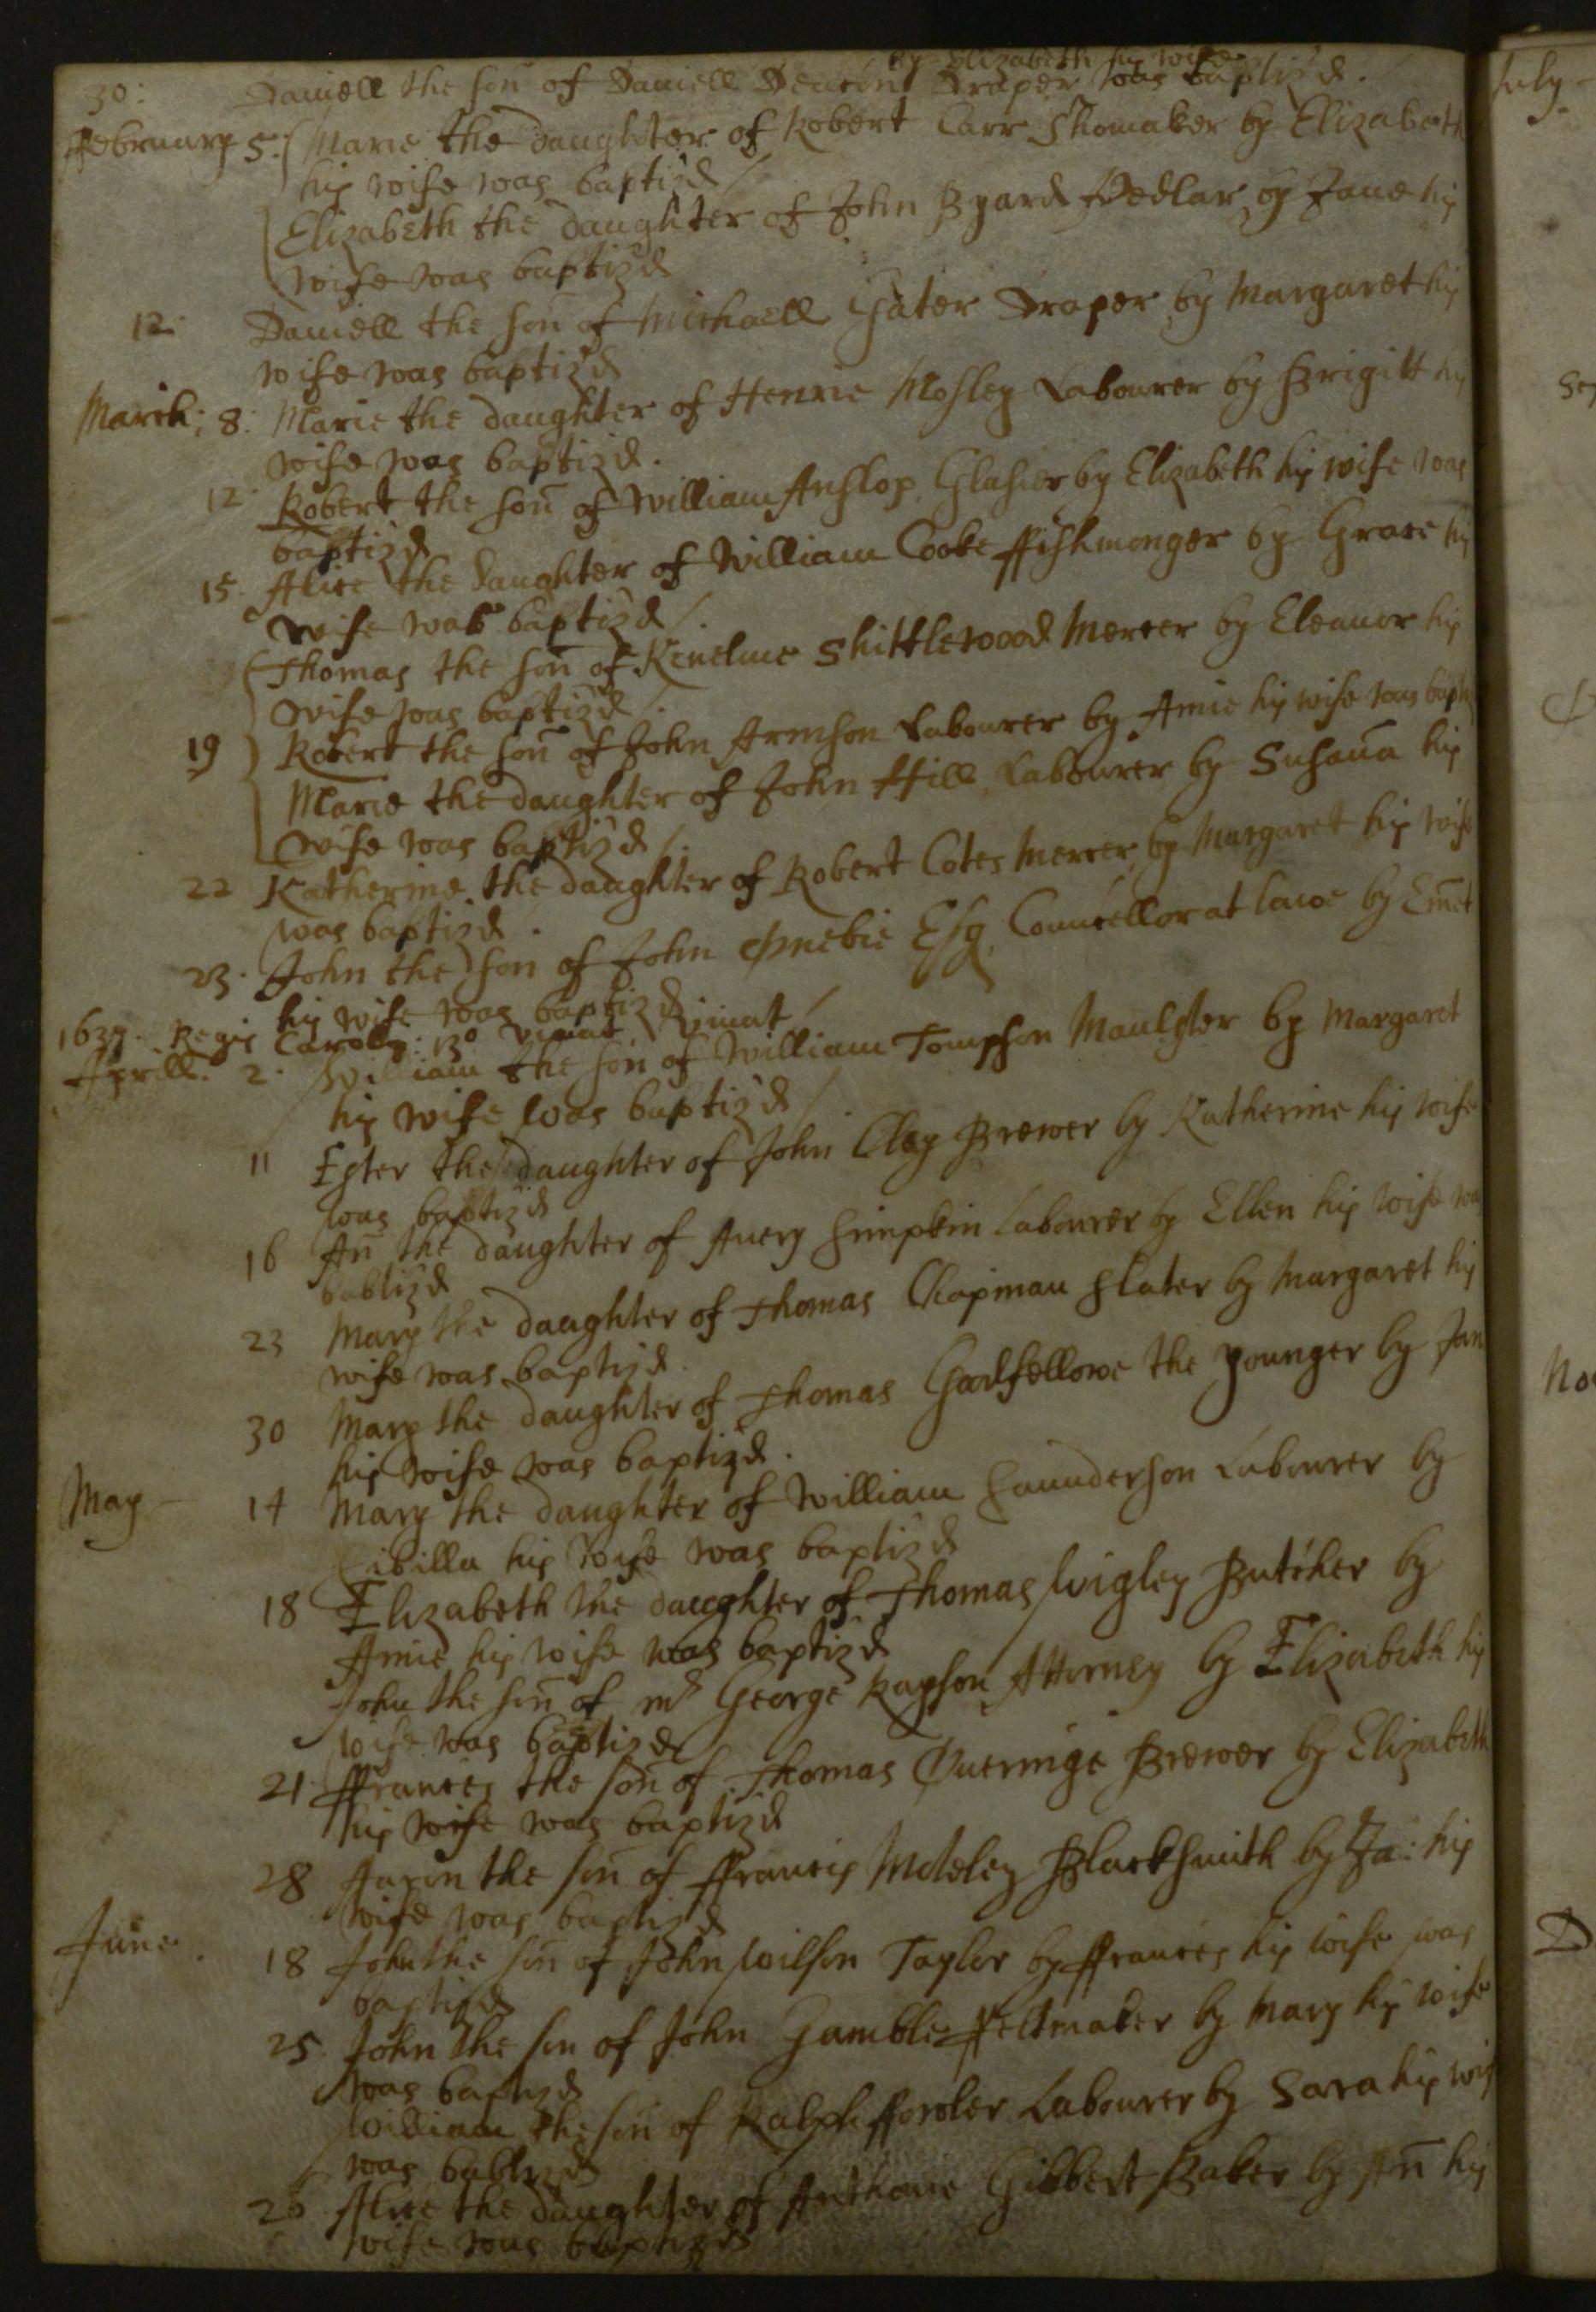 by Elizabeth his wife
30: Daniell the son̄ of Daniell Deacon Draper was baptiz'd.
ffebruary 5. Marie the daughter of Robert Carr Shomaker by Elizabeth
his wife was baptiz'd
Elizabeth the daughter of John Byard Pedlar by Jane his
wife was baptiz'd
12: Daniell the son̄ of Michaell Draper by Margaret his
wife was baptiz'd
March: 8: Marie the daughter of Henrie Mosley Labourer by Brigitt his
wife was baptiz'd.
12 Robert the son̄ of William Anslop Glasier by Elizabeth his wife was
baptiz'd
15. Alice the daughter of William Cooke ffishmonger by Grace his
wife was baptiz'd
Thomas the son̄ of Kenelme Shittlewood Mercer by Eleanor his
wife was baptiz'd
19 Robert the son̄ of John Armson Labourer by Amie his wife was bapti
Marie the daughter of John Hill Labourer by Susan̄a his
wife was baptiz'd
22 Katherine the daughter of Robert Cotes Mercer by Margaret his wife
was baptiz'd.
23. John the son of John Esq Councellor at Lawe by Em̄et
his wife was baptiz'd
1637. Regis Caroli: 13º
Aprill. 2. William the son̄ of William Tompson Maulster by Margaret
his wife was baptiz'd
11 Ester the daughter of John Clay Brewer by Katherine his wife
was baptiz'd
16 An̄ the daughter of Avery Simpkin Labourer by Ellen his wife wa
babtiz'd
23 Mary the daughter of Thomas Chapman Slater by Margaret his
wife was baptiz'd.
30 Mary the daughter of Thomas Goodfellowe the younger by Jan
his wife was baptiz'd.
May 14 Mary the daughter of William Saunderson Labourer by
Cibilla his wife was baptiz'd
18 Elizabeth the daughter of Thomas Wigley Butcher by
Amie his wife was baptiz'd
John the son̄ of mr George Rayson Attorney by Elizabeth his
wife was baptiz'd
21. ffrances the son̄ of Thomas Queringe Brewer by Elizabeth
his wife was baptiz'd
28 Aaron the son̄ of ffrancis Blacksmith by Ja: his
wife was baptiz'd
June. 18 John the son̄ of John Wilson Taylor by ffrances his wife was
baptiz'd
25. John the son of John Gamble ffeltmaker by Mary his wife
was baptiz'd
William the son̄ of Ralph ffowler Labourer by Sara his wif
was babtiz'd
26 Alice the daughter of Anthonie Gibbert Baker by An̄ his
wife was baptiz'd
July
No
D